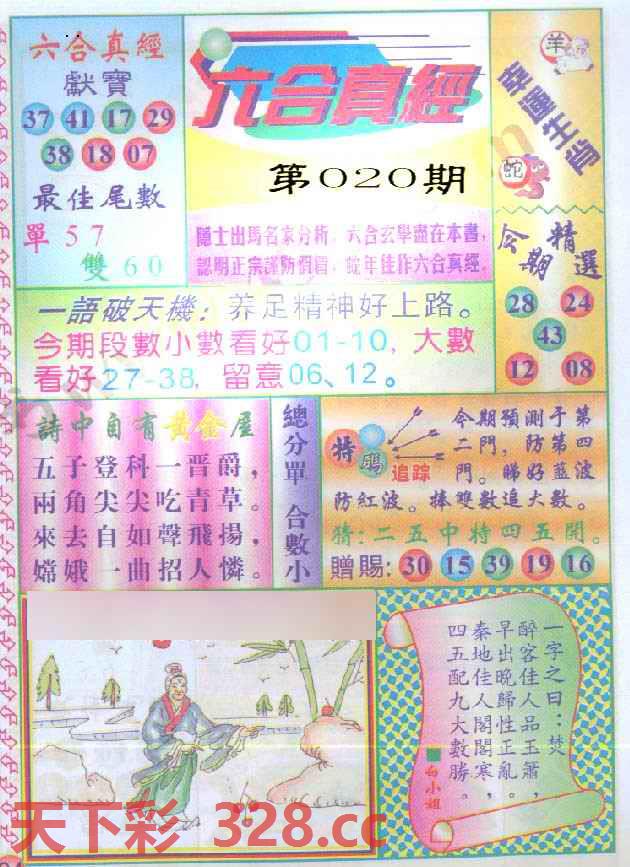 六合真經
獻寶
37 41 17 29
38 18 07
最佳尾數
單 5 7
雙 6 0
六合真經
第020期
隱士出馬名家分析，六合玄學盡在本書，
認明正宗謹防假冒，蛇年佳作六合真經。
羊
幸運生肖
蛇
今期精選
28 24
43
12 08
一語破天機：养足精神好上路。
今期段數小數看好01-10，大數
看好27-38，留意06、12。
詩中自有黄金屋
五子登科一晋爵，
兩角尖尖吃青草。
來去自如聲飛揚，
嫦娥一曲招人憐。
總分單 合數小
特碼
追踪
今期預測于第
二門，防第四
門。睇好藍波
防紅波。捧雙數追大數。
猜：二五中特四五開。
贈賜：30 15 39 19 16
一字之曰：焚
醉客佳人品玉簫，
早出晚歸性正亂。
秦地佳人閣閣寒，
四五配九大數勝。
白小姐
天下彩 328.cc